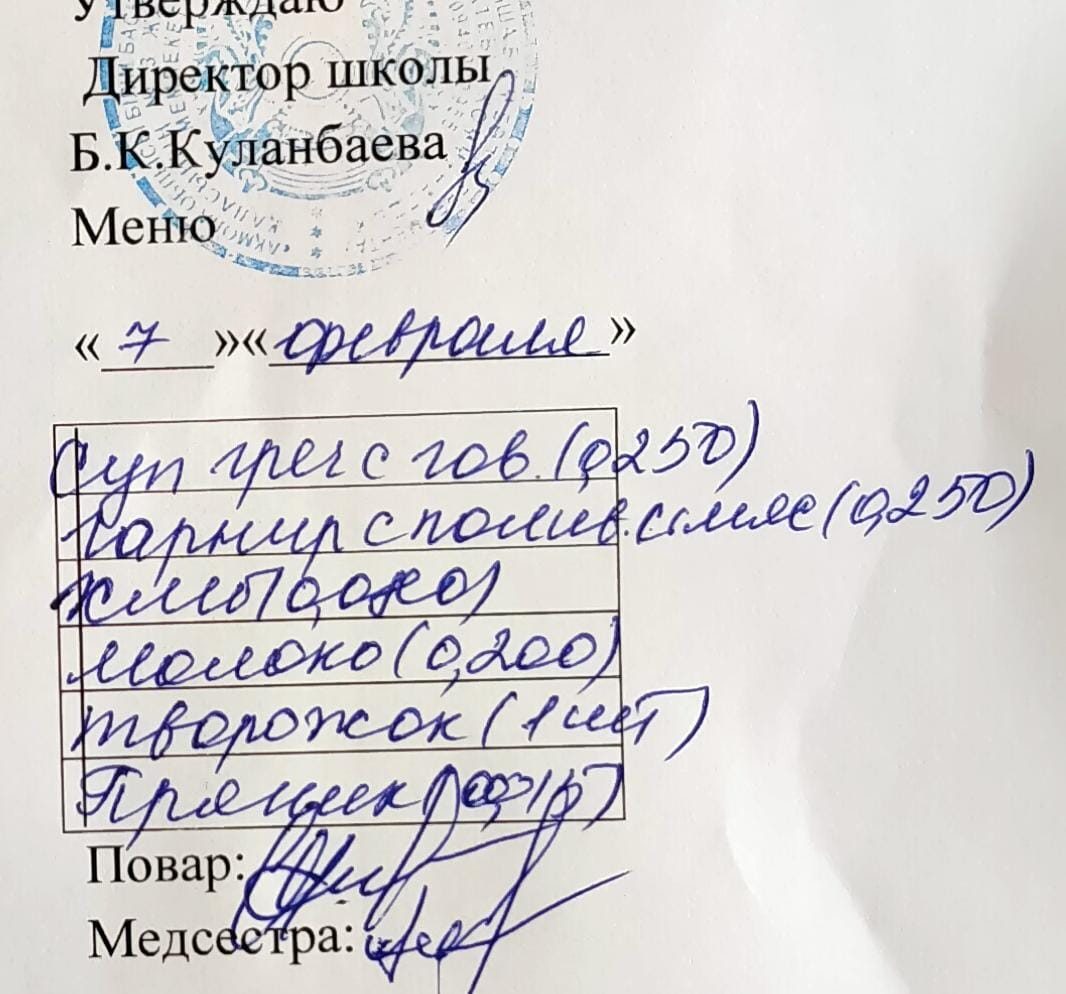 Утверждаю
Директор школы
Б.К.Куланбаева
Меню
«7»«февраля»
Суп греч с гов. (0,250)
Гарнир с полив. с мясе (0,250)
Хлеб
Молоко (0,200)
Творожок (1 шт)
Пряник
Повар:
Медсестра: